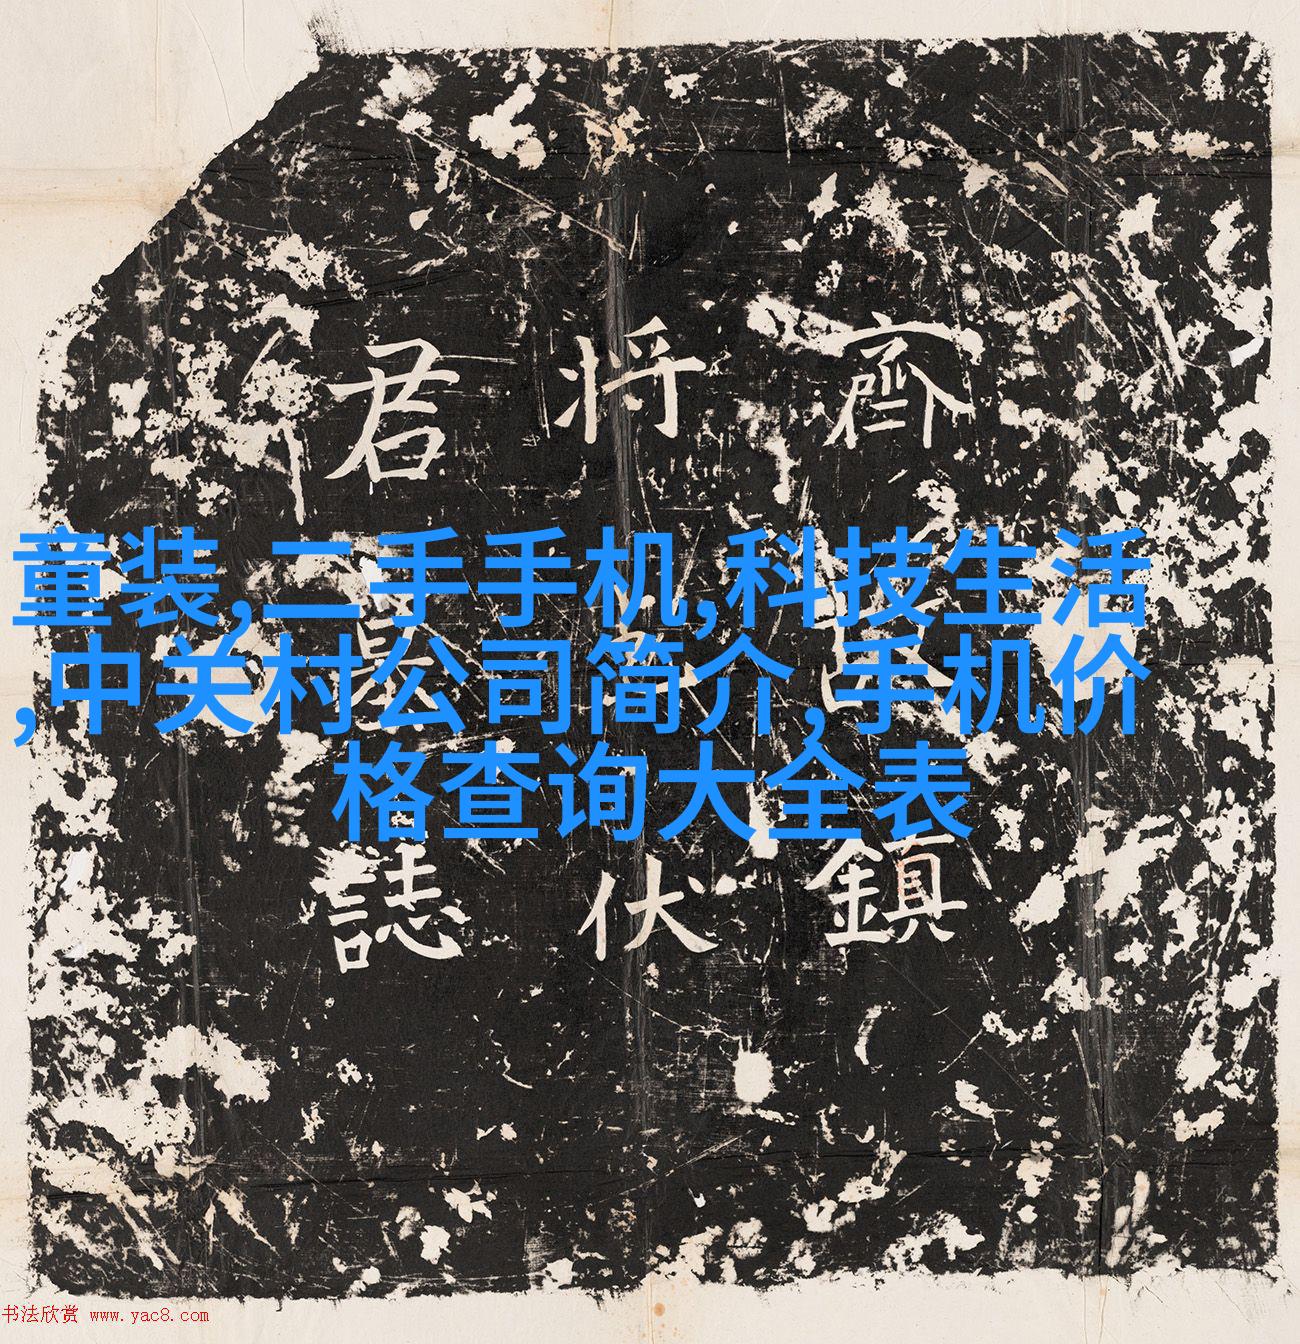 齊鎮
将伏
君墓誌
童装,二手手机,科技生活
,中关村公司简介,手机价
格查询大全表
书法欣赏 www.yac8.com